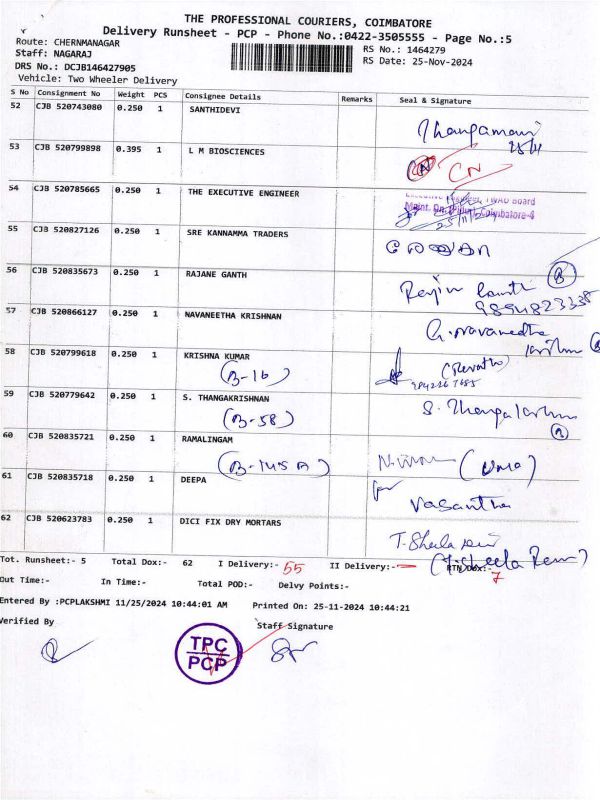 THE PROFESSIONAL COURIERS, COIMBATORE
Delivery Runsheet - PCP - Phone No.:0422-3505555 - Page No.:5
Route: CHERNMANAGAR
Staff: NAGARAJ
DRS No.: DCJB146427905
Vehicle: Two Wheeler Delivery
RS No.: 1464279
RS Date: 25-Nov-2024
S No Consignment No Weight PCS Consignee Details Remarks Seal & Signature
52 CJB 520743080 0.250 1 SANTHIDEVI
Thangamani
25/11
53 CJB 520799898 0.395 1 L M BIOSCIENCES
CN CN
54 CJB 520785665 0.250 1 THE EXECUTIVE ENGINEER
TWAD Board
Coimbatore-4
55 CJB 520827126 0.250 1 SRE KANNAMMA TRADERS
56 CJB 520835673 0.250 1 RAJANE GANTH
B
57 CJB 520866127 0.250 1 NAVANEETHA KRISHNAN
G. Navaneetha
58 CJB 520799618 0.250 1 KRISHNA KUMAR
(B-16)
(Revathi)
59 CJB 520779642 0.250 1 S. THANGAKRISHNAN
(B-58)
60 CJB 520835721 0.250 1 RAMALINGAM
(B-145 A)
(Uma)
61 CJB 520835718 0.250 1 DEEPA
for Vasantha
62 CJB 520623783 0.250 1 DICI FIX DRY MORTARS
T. Sheela Rani
(T. Sheela Rani)
Tot. Runsheet:- 5 Total Dox:- 62 I Delivery:- 55 II Delivery:- — RTN DOX:- 7
Out Time:- In Time:- Total POD:- Delvy Points:-
Entered By :PCPLAKSHMI 11/25/2024 10:44:01 AM Printed On: 25-11-2024 10:44:21
Verified By Staff Signature
TPC
PCP